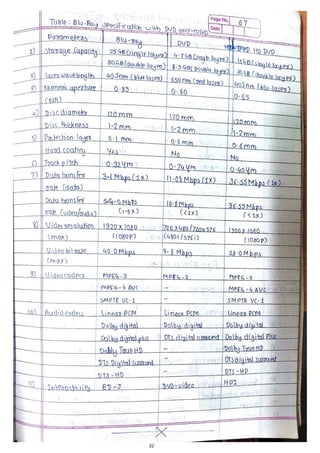 Page No. 67
Date
Table: Blu-Ray specification with DVD and HDDVD
Parameters Blu-Ray DVD HD DVD
1) Storage capacity 25GB (single layer) 4.7GB (single layer) 15GB (single layer)
50GB (double layer) 8.5GB (double layer) 30GB (double layer)
2) Laser wavelength 405nm (blue laser) 650nm (red laser) 405nm (blu-laser)
3) Numeric aperture 0-85 0-60 0-65
(NA)
4) Disc diameter 120mm 120mm 120mm
Disc thickness 1-2mm 1-2mm 1-2mm
5) Protection layer 0-1mm 0-6mm 0-6mm
Hard coating Yes No No
6) Track pitch 0-32µm 0-74µm 0-40µm
7) Data transfer 36Mbps (1x) 11-08Mbps (1x) 36-55Mbps (1x)
rate (data)
Data transfer 54-0Mbps 10-8Mbps 36-55Mbps
rate (video/audio) (1-5x) (<1x) (<1x)
8) Video resolution 1920x1080 720x480/720x576 1920x1080
(max) (1080P) (480i/576i) (1080P)
Video bit rate 40-0Mbps 9-8Mbps 28-0Mbps
(max)
9) Video codecs MPEG-2 MPEG-2 MPEG-2
MPEG-4 AVC - MPEG-4 AVC
SMPTE VC-1 - SMPTE VC-1
10) Audio codecs Linear PCM Linear PCM Linear PCM
Dolby digital Dolby digital Dolby digital
Dolby digital plus DTS digital surround Dolby digital Plus
Dolby True HD - Dolby True HD
DTS Digital surround - DTS digital surround
DTS-HD - DTS-HD
11) Interactivity BD-J DVD-video HDI